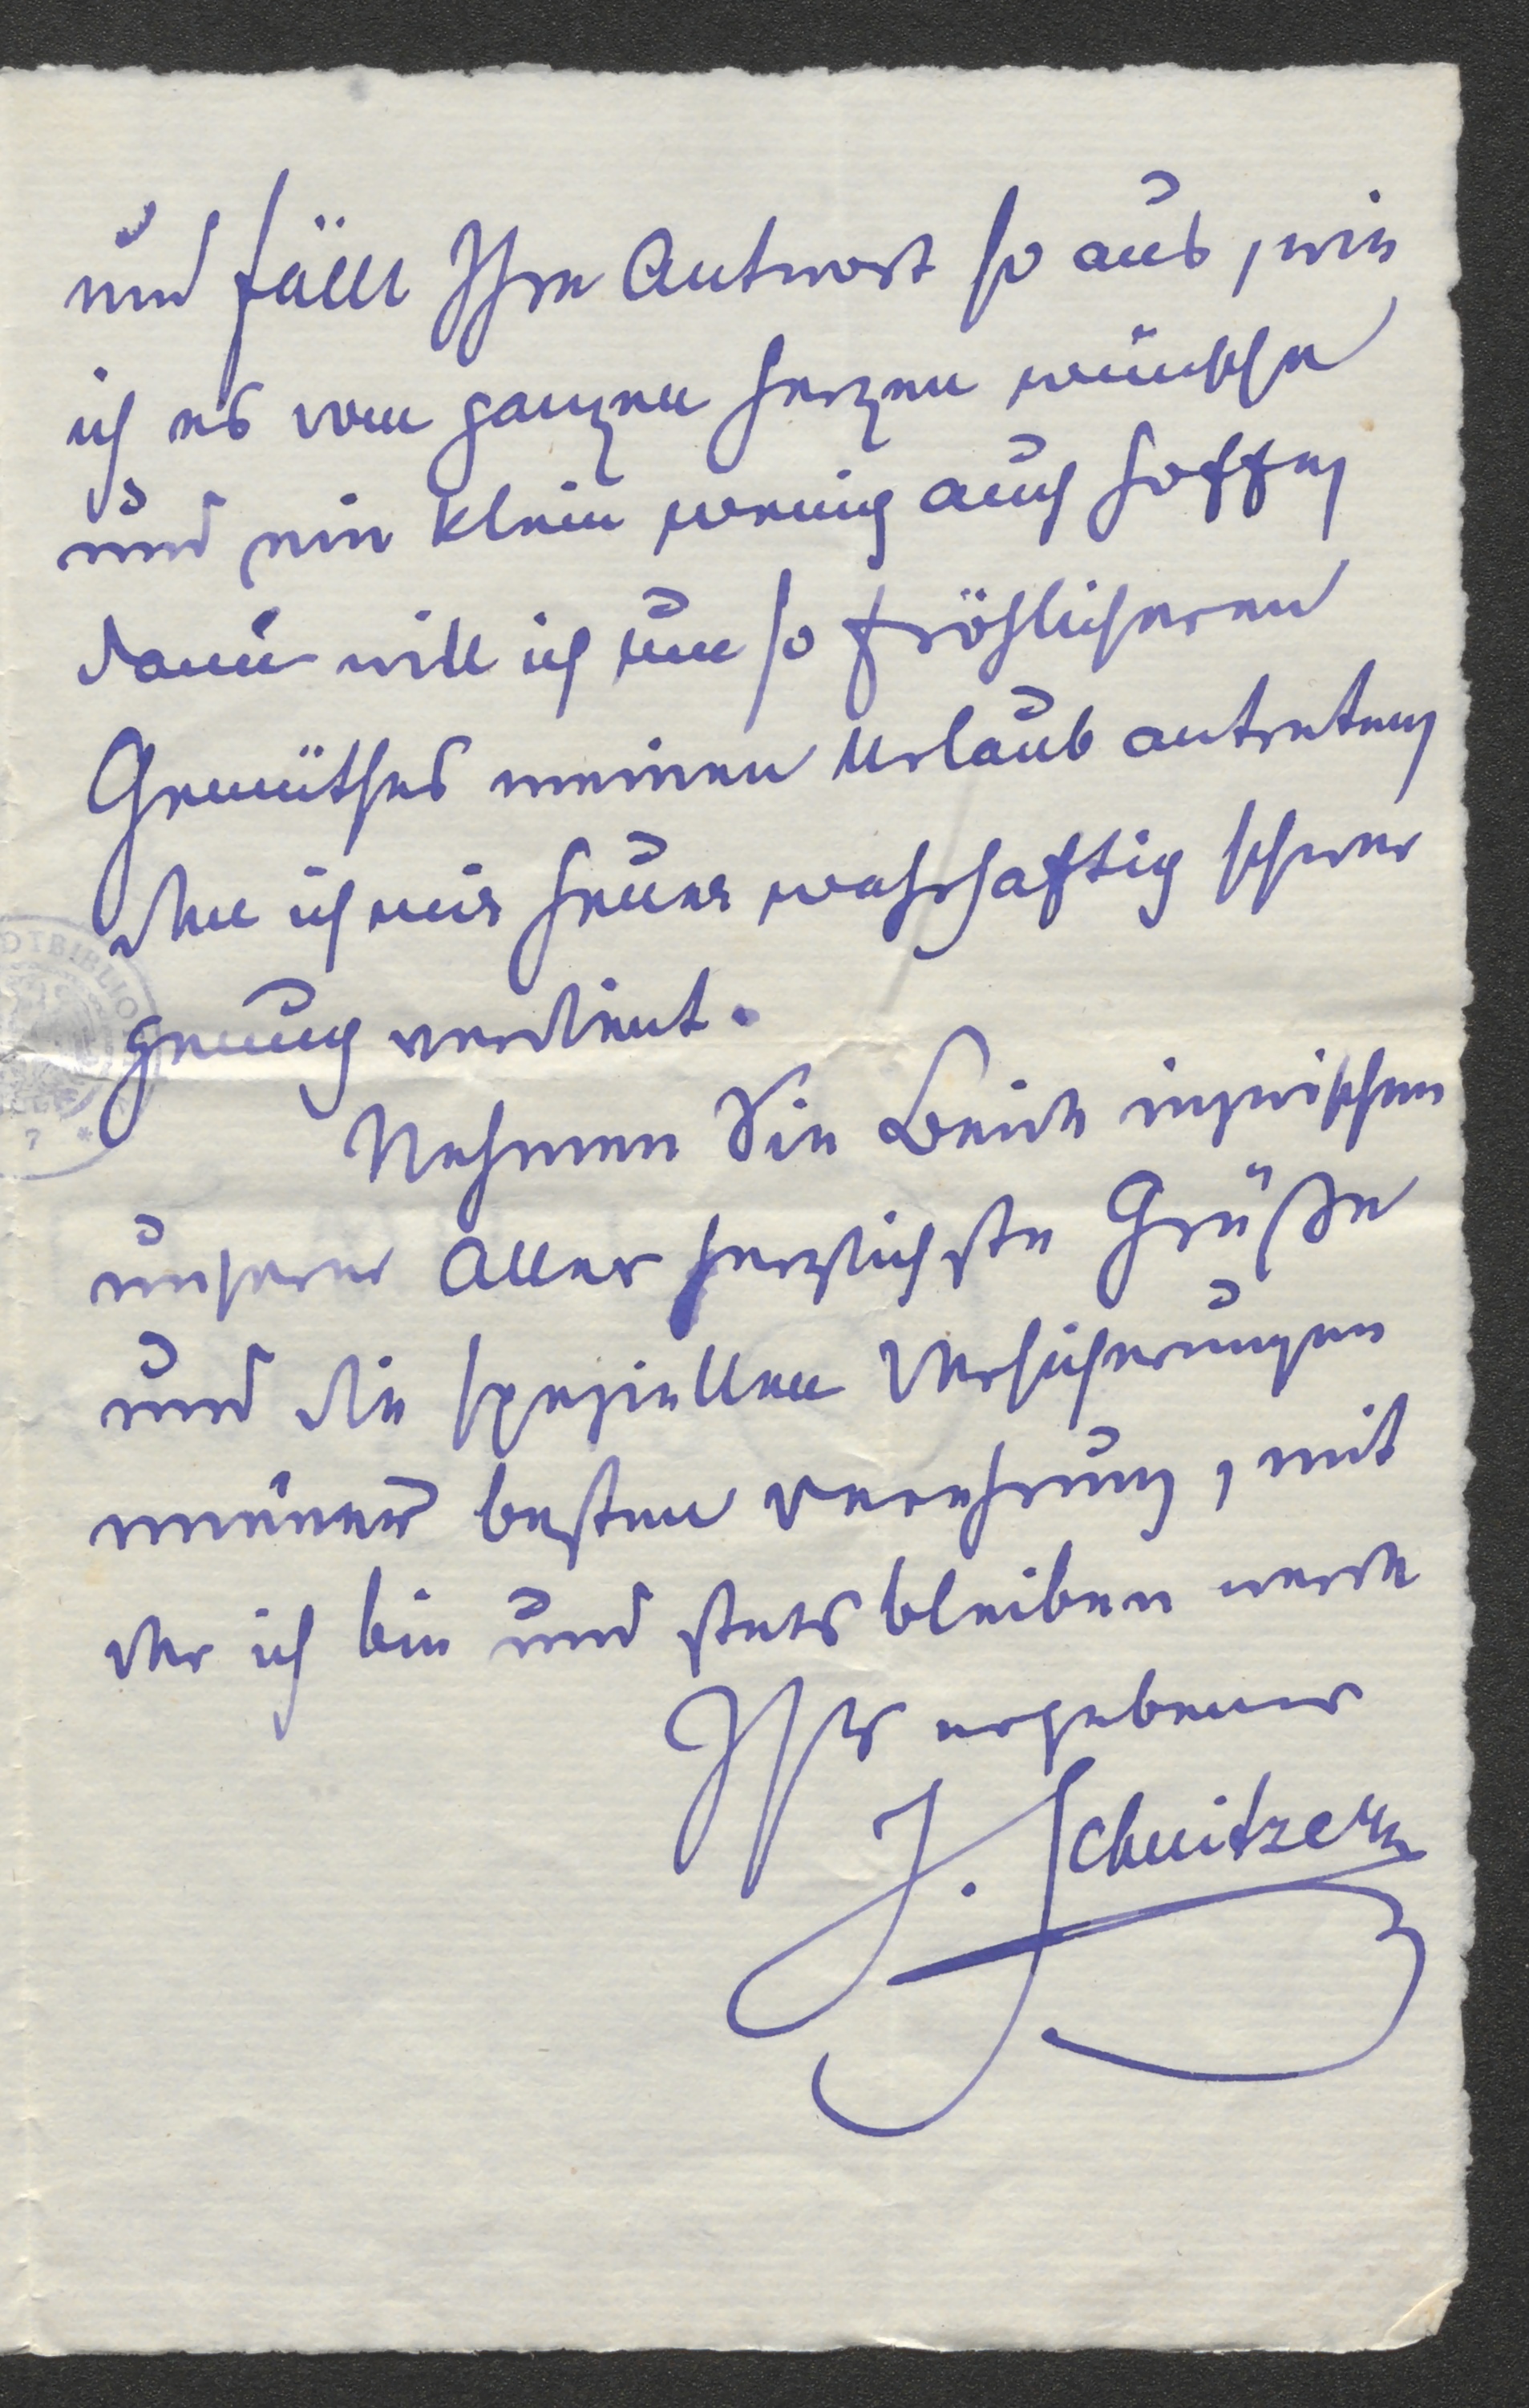 und fällt Ihre Antwort so aus, wie
ich es vom ganzen Herzen wünsche
und ein klein wenig auch hoffe,
dann will ich um so fröhlicheren
Gemüthes meinen Urlaub antreten,
den ich mir heuer wahrhaftig schwer
genug verdient.
Nehmen Sie Beide inzwischen
unserer Aller herzlichste Grüße
und die speziellen Versicherungen
meiner besten Verehrung, mit
der ich bin und stets bleiben werde
Ihr ergebener
J. Schnitzer
DTBIBLIO
7 *